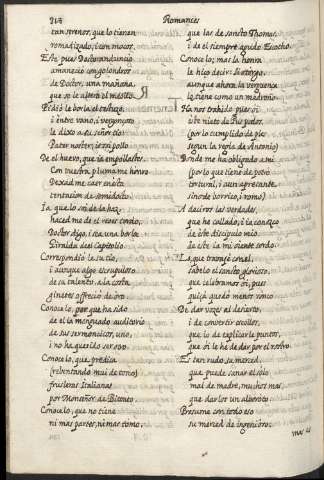 Romances
tan serenos, que lo tienen
romadizado, i con mocos.
Este pues Doctorando
amaneció con golondros
de Doctor, una mañana,
que se le alteró el meollo.
Pidió le borla el
i entre vano, i vergonçoso
le dixo a su señor tio
Pater noster,
De el huevo, que ia empollaste,
Con vuestra pluma me honro
Dexad me caer en esta
tentacion de
Ia que lo roi de la haz,
haced me de el reves
Doctor digo, i sea una borla
Giralda de el Capitolio.
Correspondió le su tio,
i aunque algo escrupuloso
de su talento, a la costa
ginetes ofreció de oro
Conocelo, por que ha sido
de el tà menguado auditorio
de sus sermonicos, uno,
i no ha querido ser otro.
Conocelo, que predica
(rebentando mui de tomo)
frusleras Italianas
por Monseñor de Bitonto
Conocelo, que no tiene
ni mas partes, ni mas tomo
que las de sancto Thomas,
i de el siempre agudo Escotho.
Conocelo; mas la honra
le hiço decir:
aunque ahora la verguença
le tiene como un madroño
Ha nos trahido pues oi
este nieto de
(por lo cumplido de pies
segun la regla de Antonio)
Donde me ha obligado a mi
(por lo que tiene de potro
natural, i aun apresante,
sino de borrico, i romo)
A deciros las verdades,
que he callado, i la conozco
de este discipulo mio,
de este la mi oiente sordo.
La que trompeconel,
sabelo el sancto glorioso,
que celebramos oi, pues
quiça quedó menos ronco
De dar voces al desierto,
i de convertir escollos,
que io de explicarle puntos,
que oi le hé de dar por el rostro.
Es tan rudo su merced,
que puede sanar el solo
mal de madre, muchos mas,
que darlos un alboroto
Presume con todo eso
su merced de ingenioso;
mas es